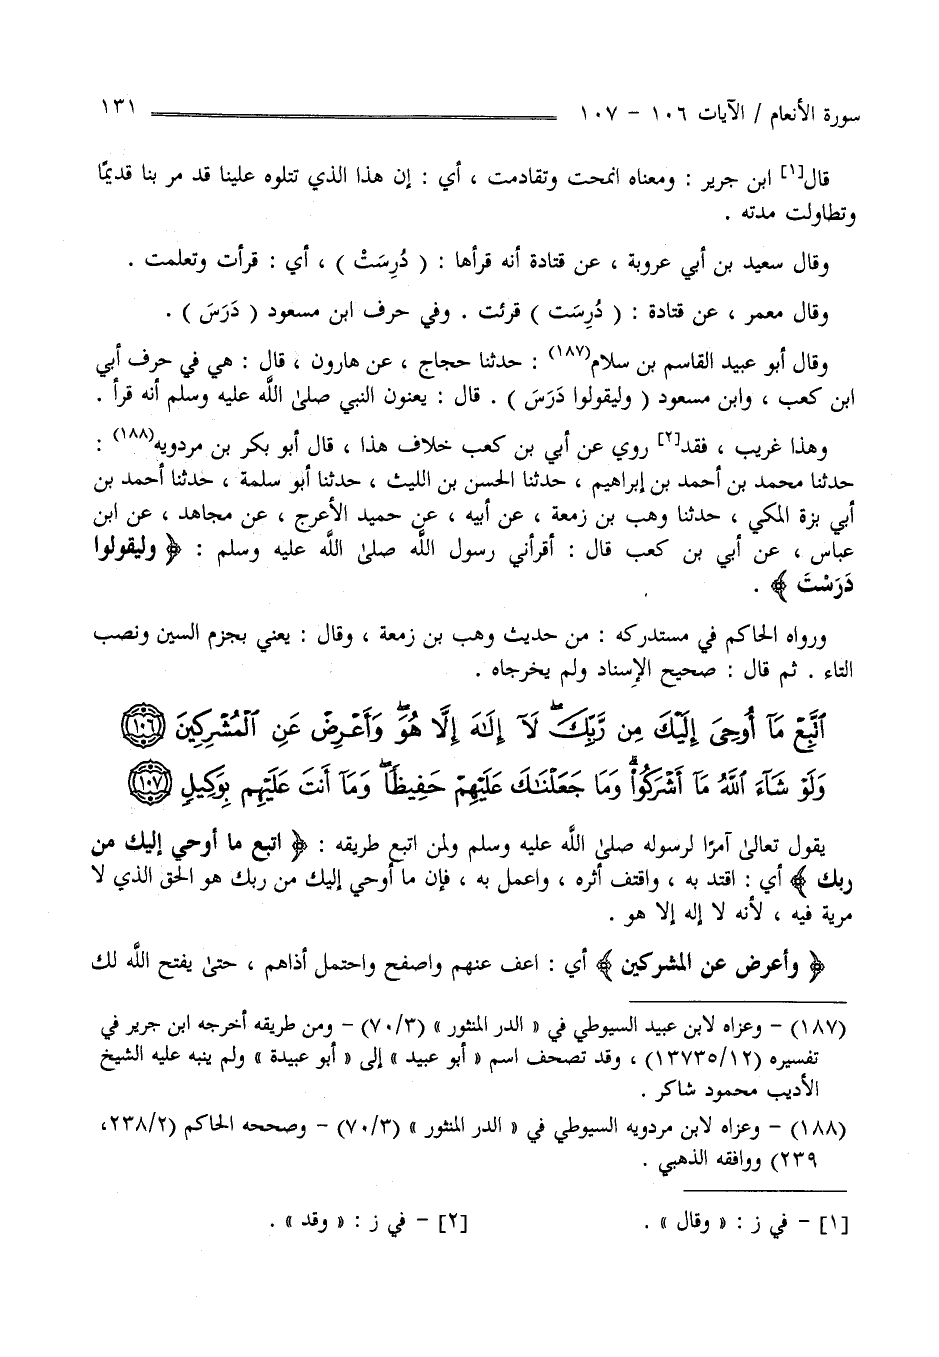 سورة الأنعام / الآيات ١٠٦ - ١٠٧ ١٣١
قال[١] ابن جرير : ومعناه انمحت وتقادمت ، أي : إن هذا الذي تتلوه علينا قد مر بنا قديمًا
وتطاولت مدته .
وقال سعيد بن أبي عروبة ، عن قتادة أنه قرأها : ( دُرِسَتْ ) ، أي : قرأت وتعلمت .
وقال معمر ، عن قتادة : ( دُرِسَت ) قرئت . وفي حرف ابن مسعود ( دَرَسَ ) .
وقال أبو عبيد القاسم بن سلام(١٨٧) : حدثنا حجاج ، عن هارون ، قال : هي في حرف أبي
ابن كعب ، وابن مسعود ( وليقولوا دَرَسَ ) . قال : يعنون النبي صلىٰ اللَّه عليه وسلم أنه قرأ .
وهذا غريب ، فقد[٢] روي عن أبي بن كعب خلاف هذا ، قال أبو بكر بن مردويه(١٨٨) :
حدثنا محمد بن أحمد بن إبراهيم ، حدثنا الحسن بن الليث ، حدثنا أبو سلمة ، حدثنا أحمد بن
أبي بزة المكي ، حدثنا وهب بن زمعة ، عن أبيه ، عن حميد الأعرج ، عن مجاهد ، عن ابن
عباس ، عن أبي بن كعب قال : أقرأني رسول اللَّه صلىٰ اللَّه عليه وسلم : ﴿ وليقولوا
دَرَسْتَ ﴾ .
ورواه الحاكم في مستدركه : من حديث وهب بن زمعة ، وقال : يعني بجزم السين ونصب
التاء . ثم قال : صحيح الإسناد ولم يخرجاه .
ٱتَّبِعْ مَآ أُوحِىَ إِلَيْكَ مِن رَّبِّكَ ۖ لَآ إِلَٰهَ إِلَّا هُوَ ۖ وَأَعْرِضْ عَنِ ٱلْمُشْرِكِينَ ١٠٦
وَلَوْ شَآءَ ٱللَّهُ مَآ أَشْرَكُوا۟ ۗ وَمَا جَعَلْنَٰكَ عَلَيْهِمْ حَفِيظًا ۖ وَمَآ أَنتَ عَلَيْهِم بِوَكِيلٍ ١٠٧
يقول تعالىٰ آمرًا لرسوله صلىٰ اللَّه عليه وسلم ولمن اتبع طريقه : ﴿ اتبع ما أوحي إليك من
ربك ﴾ أي : اقتد به ، واقتف أثره ، واعمل به ، فإن ما أوحي إليك من ربك هو الحق الذي لا
مرية فيه ، لأنه لا إله إلا هو .
﴿ وأعرض عن المشركين ﴾ أي : اعف عنهم واصفح واحتمل أذاهم ، حتىٰ يفتح اللَّه لك
(١٨٧) - وعزاه لابن عبيد السيوطي في « الدر المنثور » (٧٠/٣) - ومن طريقه أخرجه ابن جرير في
تفسيره (١٣٧٣٥/١٢) ، وقد تصحف اسم « أبو عبيد » إلى « أبو عبيدة » ولم ينبه عليه الشيخ
الأديب محمود شاكر .
(١٨٨) - وعزاه لابن مردويه السيوطي في « الدر المنثور » (٧٠/٣) - وصححه الحاكم (٢٣٨/٢،
٢٣٩) ووافقه الذهبي .
[١] - في ز : « وقال » . [٢] - في ز : « وقد » .